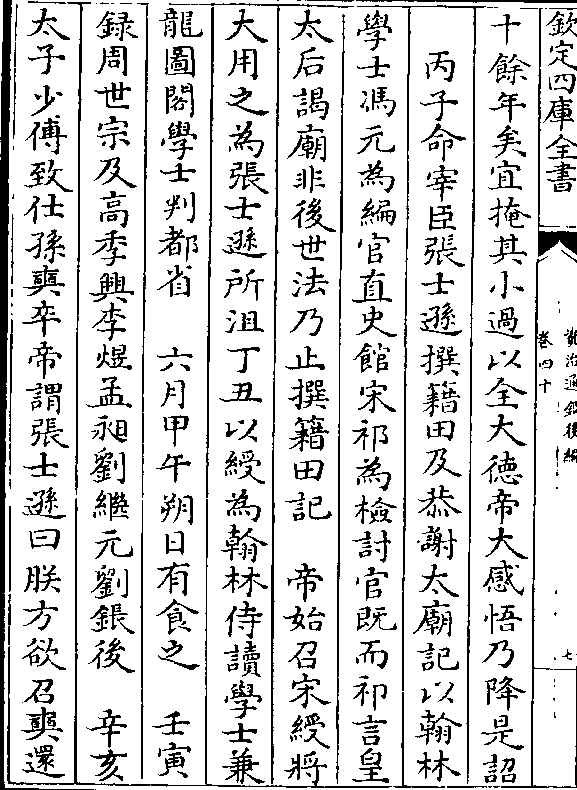 欽定四庫全書
資治通鑑後編
卷四十
七
十餘年矣宜掩其小過以全大德帝大感悟乃降是詔
丙子命宰臣張士遜撰籍田及恭謝太廟記以翰林
學士馮元為編官直史館宋祁為檢討官既而祁言皇
太后謁廟非後世法乃止撰籍田記　帝始召宋綬將
大用之為張士遜所沮丁丑以綬為翰林侍讀學士兼
龍圖閣學士判都省　六月甲午朔日有食之　壬寅
録周世宗及高季興李煜孟昶劉繼元劉鋹後　辛亥
太子少傅致仕孫奭卒帝謂張士遜曰朕方欲召奭還